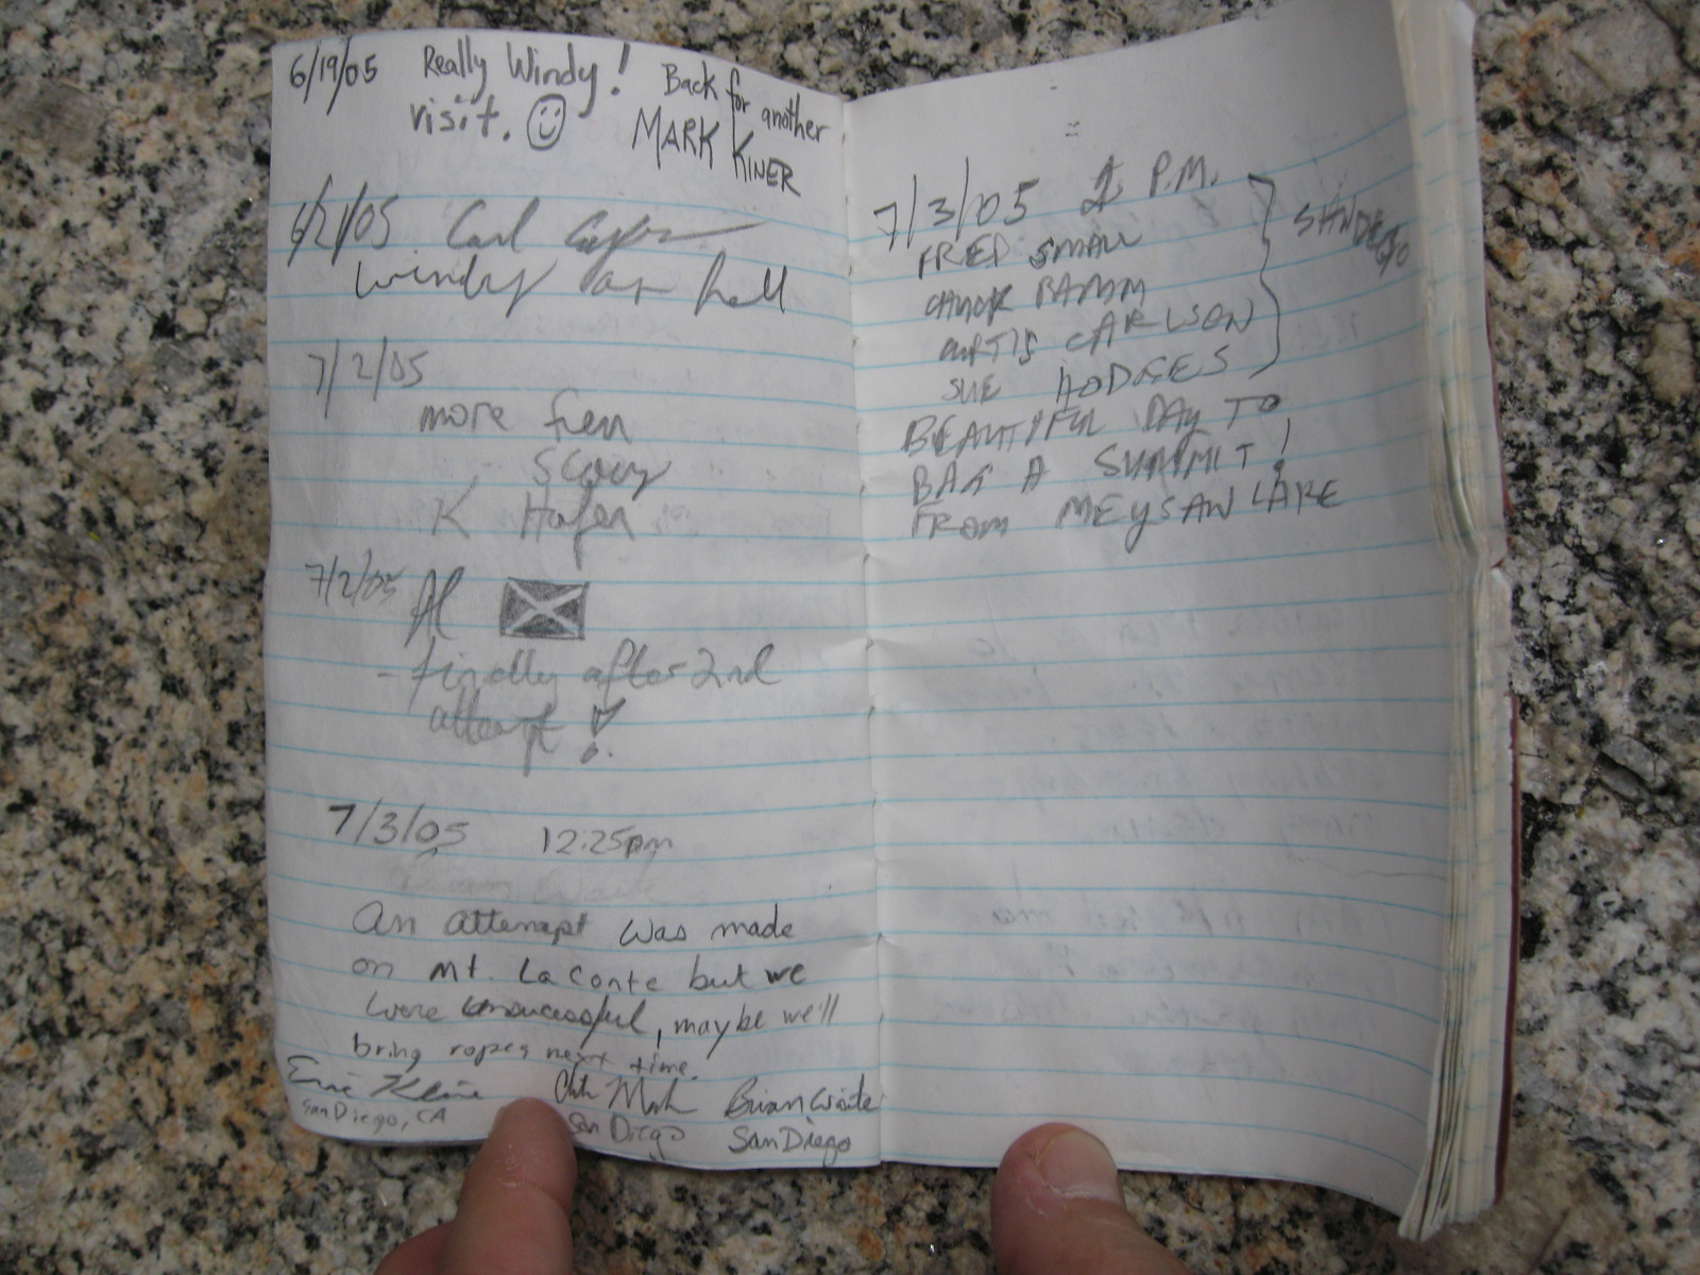 6/19/05 Really Windy! Back for another
visit. MARK KINER
6/21/05 Carl
windy as hell
7/2/05
more fun
Scary
K Hafen
7/2/05 Al
- finally after 2nd
attempt!
7/3/05 12:25pm
An attempt was made
on Mt. La Conte but we
were unsucessful, maybe we'll
bring ropes next time.
Eric Kline Brian Waite
San Diego, CA San Diego San Diego
7/3/05 P.M.
FRED SMALL
CHUCK
CURTIS CARLSON
SUE HODGES
SAN DIEGO
BEAUTIFUL DAY TO
BAG A SUMMIT!
FROM MEYSAN LAKE